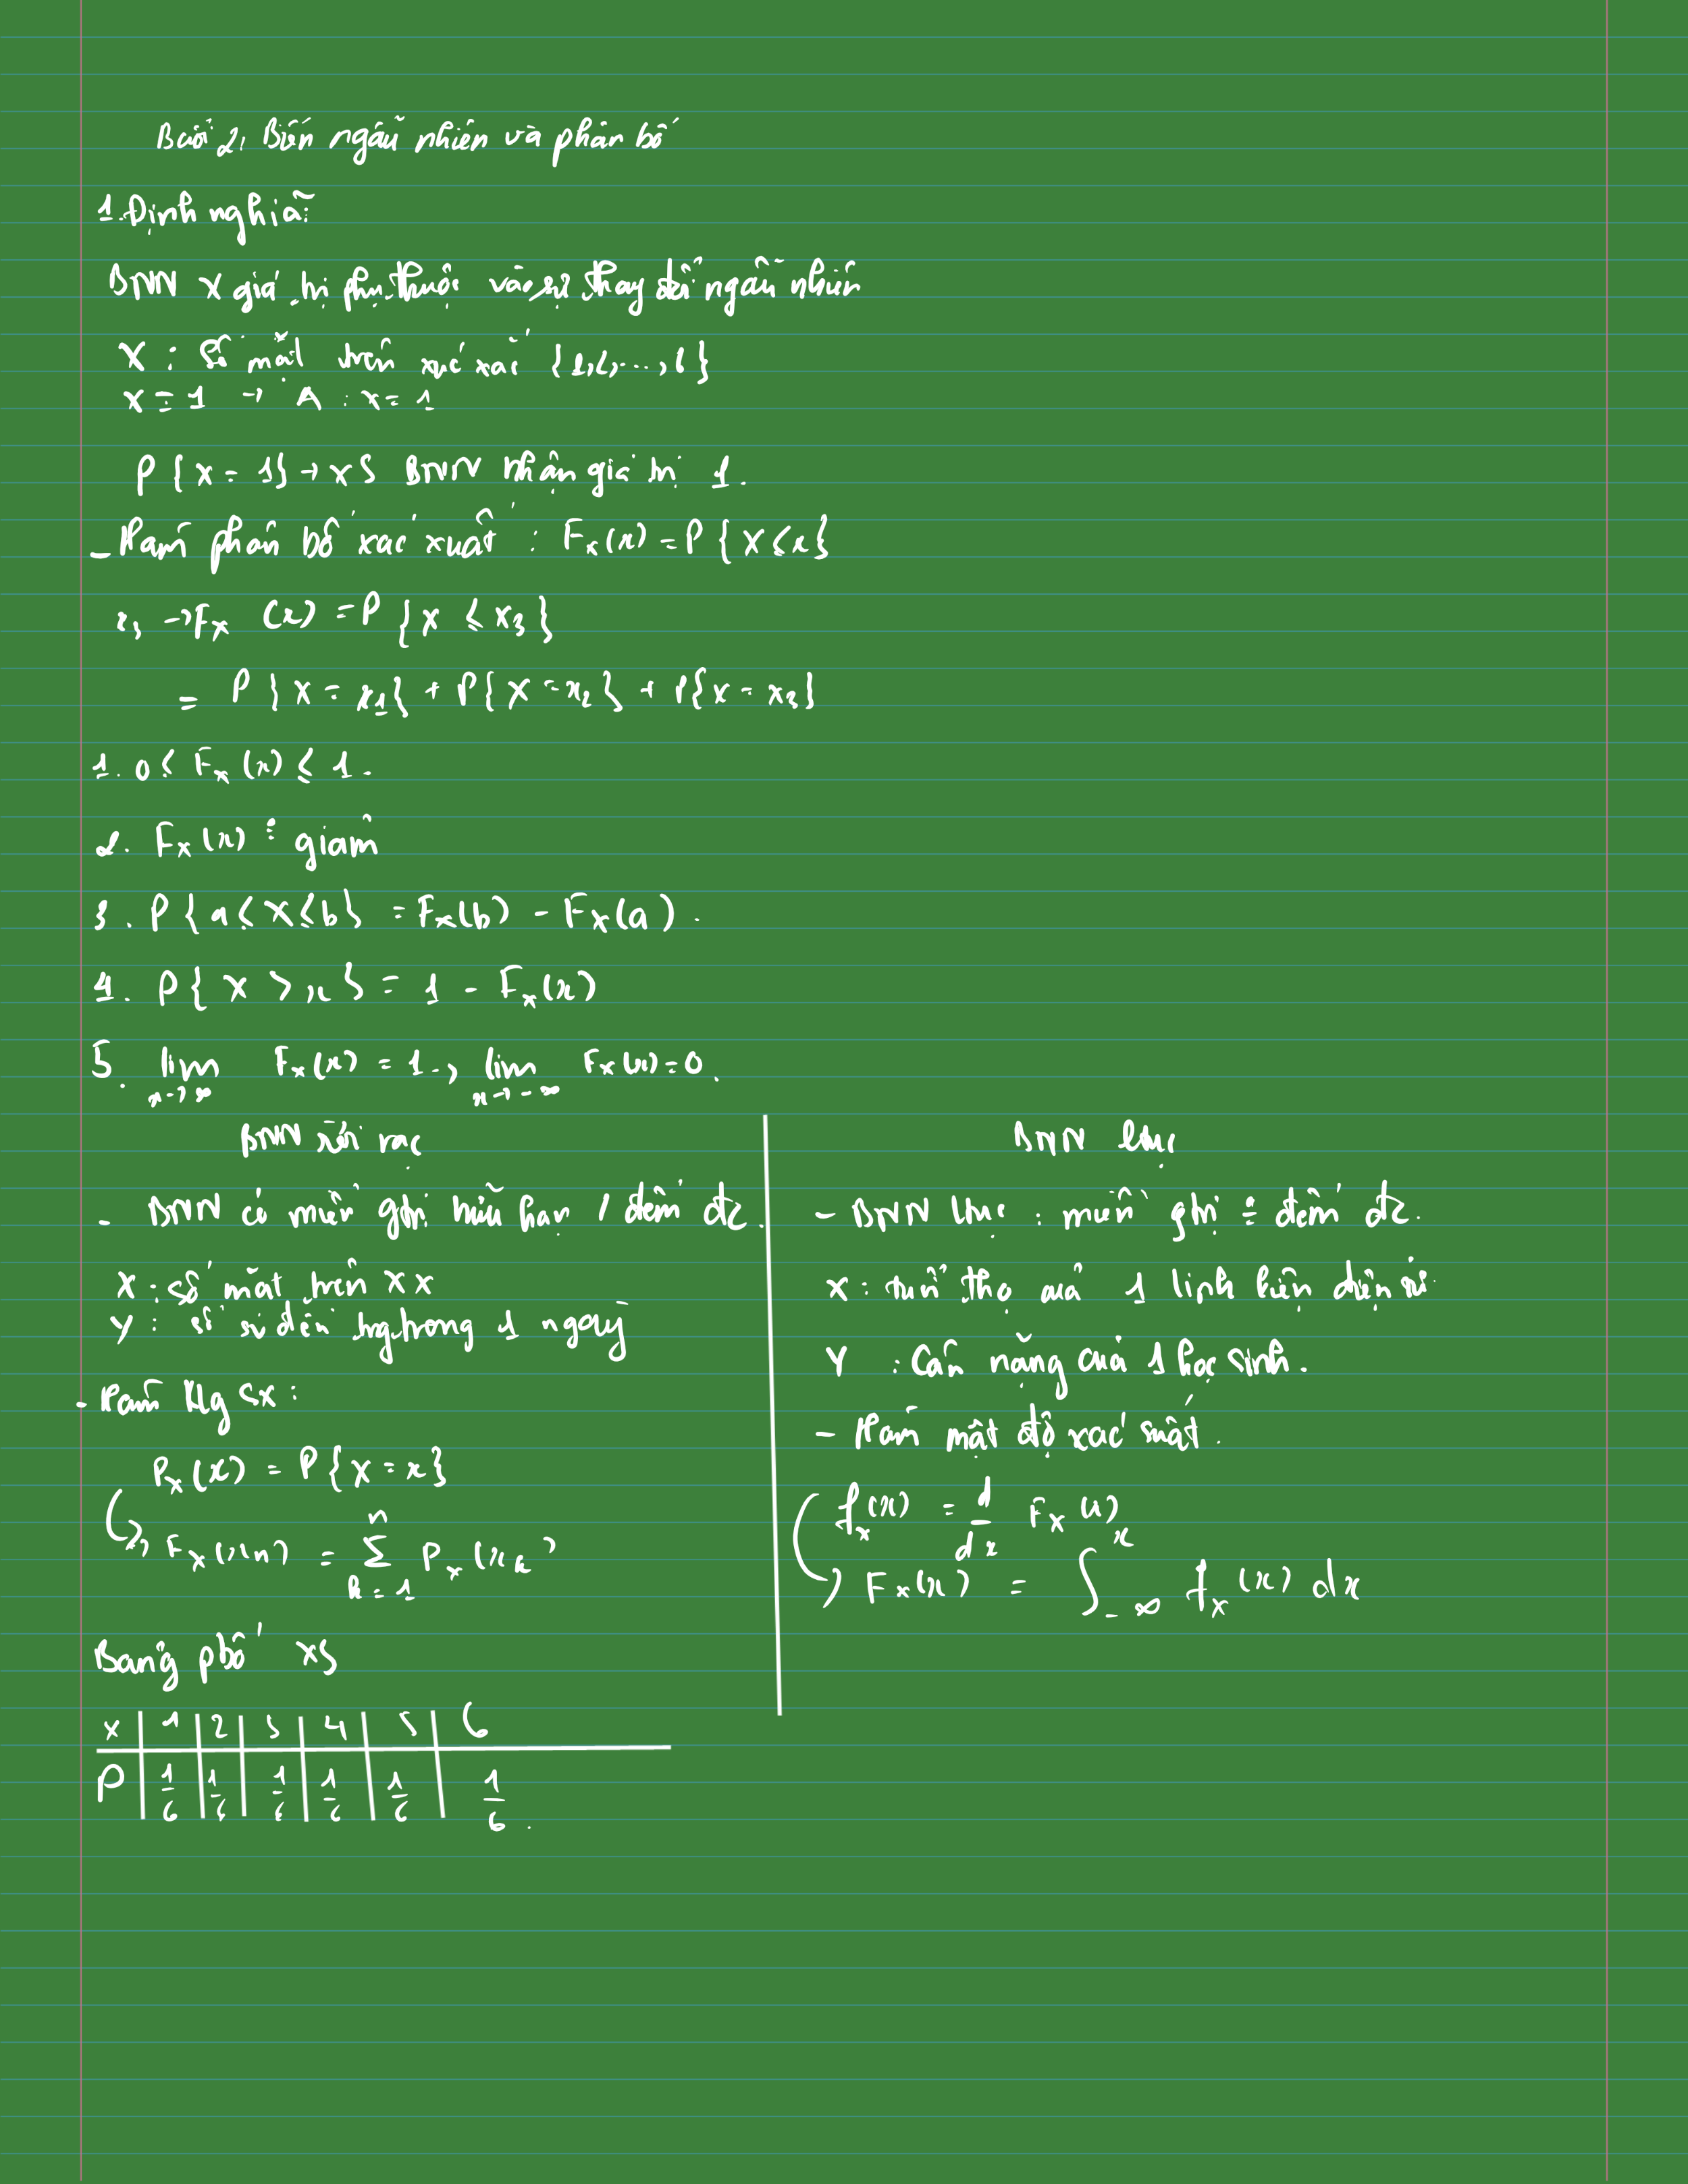 Buổi 2: Biến ngẫu nhiên và phân bố
1. Định nghĩa:
BNN X giá trị phụ thuộc vào sự thay đổi ngẫu nhiên
X : Số mặt trên xúc xắc {1,2,...,6}
X = 1 → A : x = 1
P{X = 1} → XS BNN nhận giá trị 1.
- Hàm phân bố xác xuất : Fx(x) = P{X ≤ x}
→ Fx (x) = P{X ≤ x3}
= P{X = x1} + P{X = x2} + P{X = x3}
1. 0 ≤ Fx(x) ≤ 1.
2. Fx(x) giảm
3. P{a ≤ X ≤ b} = Fx(b) - Fx(a).
4. P{X > x} = 1 - Fx(x)
5. lim x→∞ Fx(x) = 1, lim x→-∞ Fx(x) = 0.
BNN rời rạc
- BNN có miền gtrị hữu hạn / đếm đc.
X : Số mặt trên XX
Y : số sv đến trg trong 1 ngày
- Hàm klg sx :
Px(x) = P{X = x}
→ Fx(xn) = n Σ k=1 Px(xk)
Bảng pbố xs
X | 1 | 2 | 3 | 4 | 5 | 6
P | 1/6 | 1/6 | 1/6 | 1/6 | 1/6 | 1/6.
BNN ltục
- BNN ltục : miền gtrị đếm đc.
X : tuổi thọ của 1 linh kiện điện tử
Y : Cân nặng của 1 học sinh.
- Hàm mật độ xác suất.
fx(x) = d/dx Fx(x)
→ Fx(x) = ∫ x -∞ fx(x) dx